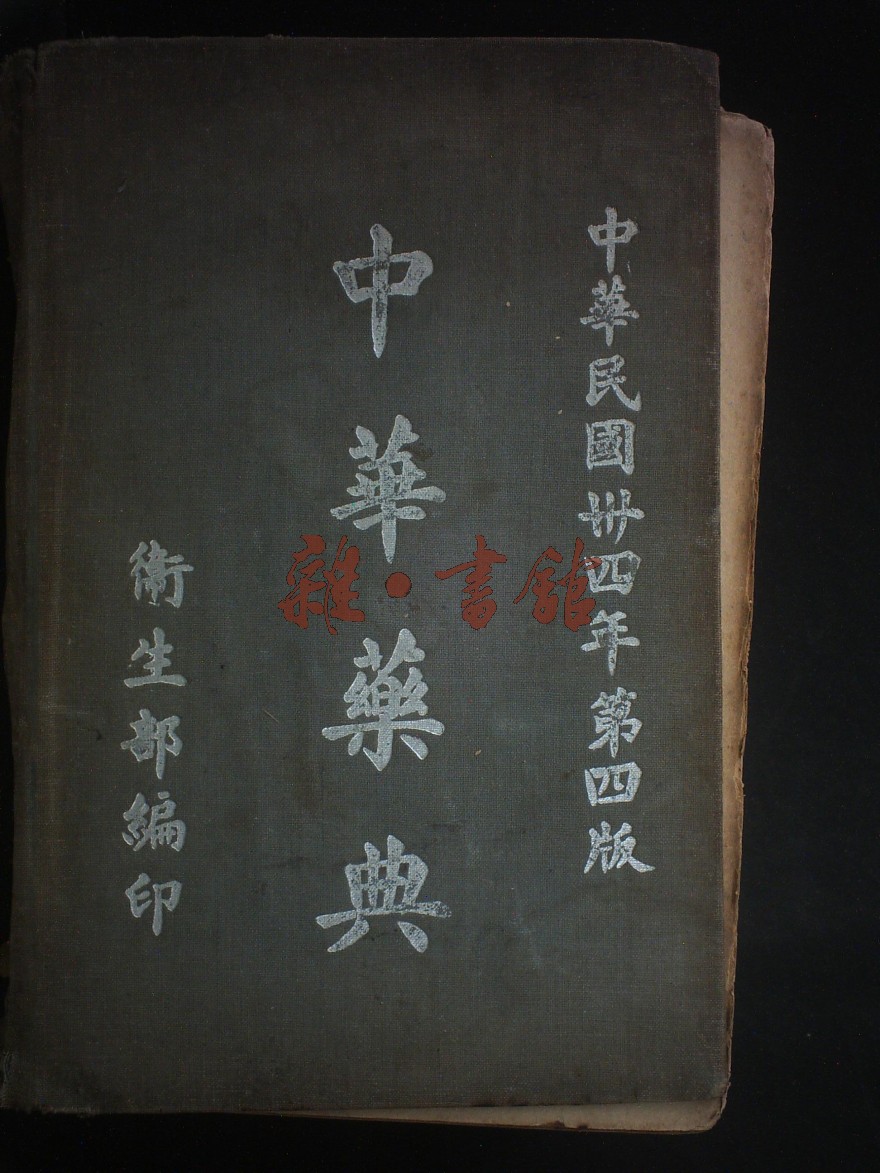 中華民國卅四年第四版
中華藥典
衛生部編印
雜·書館